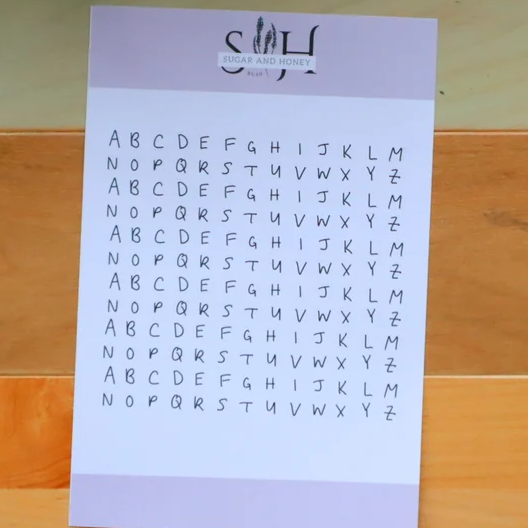 S H
SUGAR AND HONEY
A B C D E F G H I J K L M
N O P Q R S T U V W X Y Z
A B C D E F G H I J K L M
N O P Q R S T U V W X Y Z
A B C D E F G H I J K L M
N O P Q R S T U V W X Y Z
A B C D E F G H I J K L M
N O P Q R S T U V W X Y Z
A B C D E F G H I J K L M
N O P Q R S T U V W X Y Z
A B C D E F G H I J K L M
N O P Q R S T U V W X Y Z